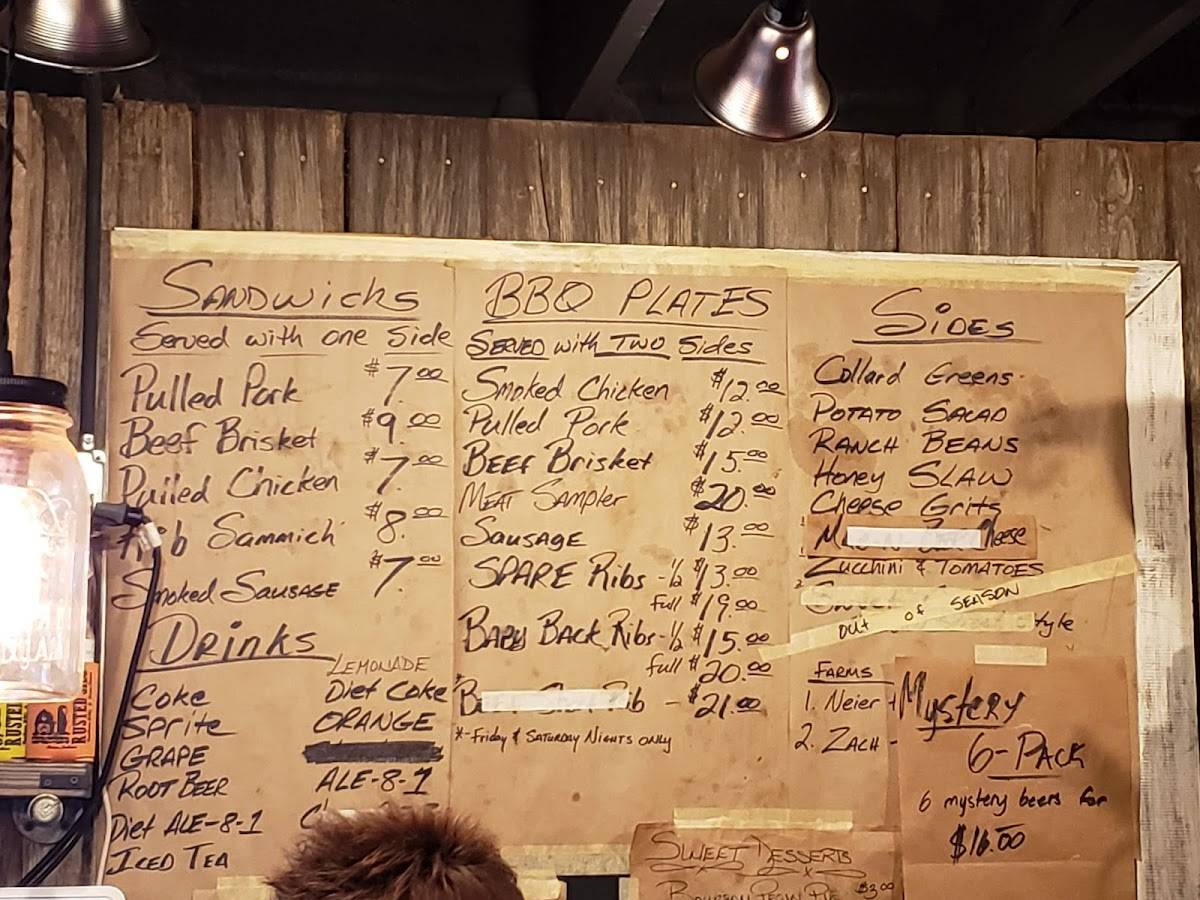 SANDWICKS
Served with one Side
Pulled Pork $7.00
Beef Brisket $9.00
Pulled Chicken $7.00
Rib Sammich $8.00
Smoked SAUSAGE $7.00
DRINKS
Coke
Sprite
GRAPE
ROOT BEER
Diet ALE-8-1
ICED TEA
LEMONADE
Diet Coke
ORANGE
ALE-8-1
BBQ PLATES
SERVED with TWO Sides
Smoked Chicken $12.00
Pulled Pork $12.00
BEEF Brisket $15.00
MEAT SAMPLER $20.00
SAUSAGE $13.00
SPARE Ribs - 1/2 $13.00
full $19.00
BABY BACK Ribs - 1/2 $15.00
full $20.00
- $21.00
*- Friday & SATURDAY NIGHTS ONLY
SIDES
Collard Greens
POTATO SALAD
RANCH BEANS
Honey SLAW
Cheese Grits
Zucchini & TOMATOES
OUT of SEASON
FARMS
1. Neier
2. ZACH -
Mystery
6-PACK
6 mystery beers for
$16.00
SWEET DESSERTS
BOURBON PECAN PIE $3.00
RUSTED
RUSTED